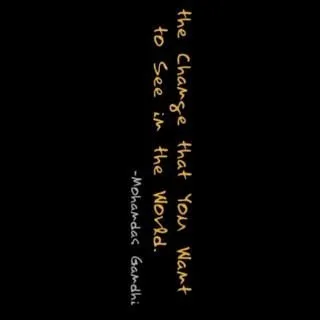 the Change that You Want
to See in the World.
-Mohamdas Gamdhi